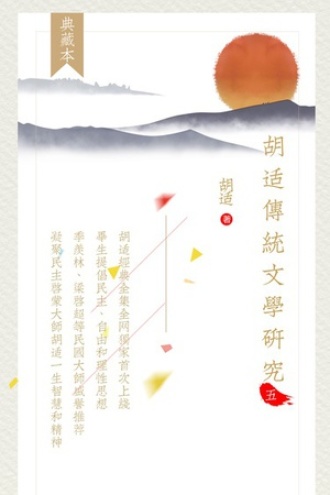 典藏本
胡适傳統文學研究
五
胡适
著
胡适經典全集全网獨家首次上綫
畢生提倡民主、自由和理性思想
季羨林、梁啓超等民國大師感譽推荐
凝聚民主啓蒙大師胡适一生智慧和精神